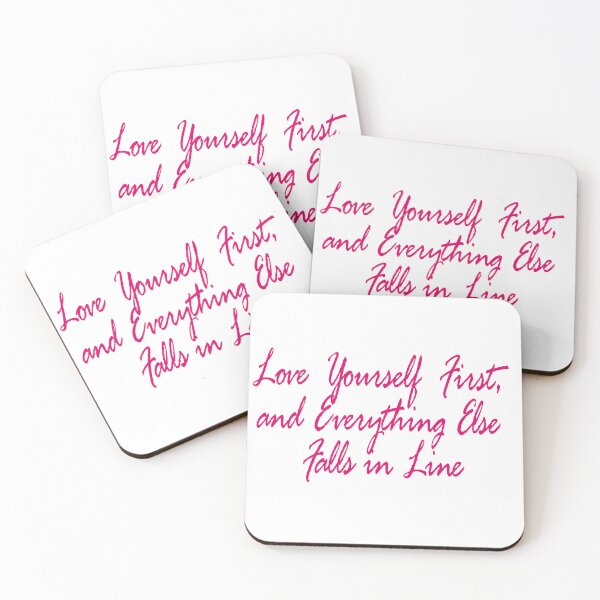 Love Yourself First,
and
Love Yourself First,
and Everything Else
Falls in Line
Love Yourself First,
and Everything Else
Falls in
Love Yourself First,
and Everything Else
Falls in Line